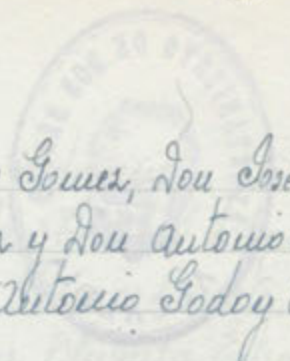 Gomez, Don José
y Don Antonio
Antonio Godoy